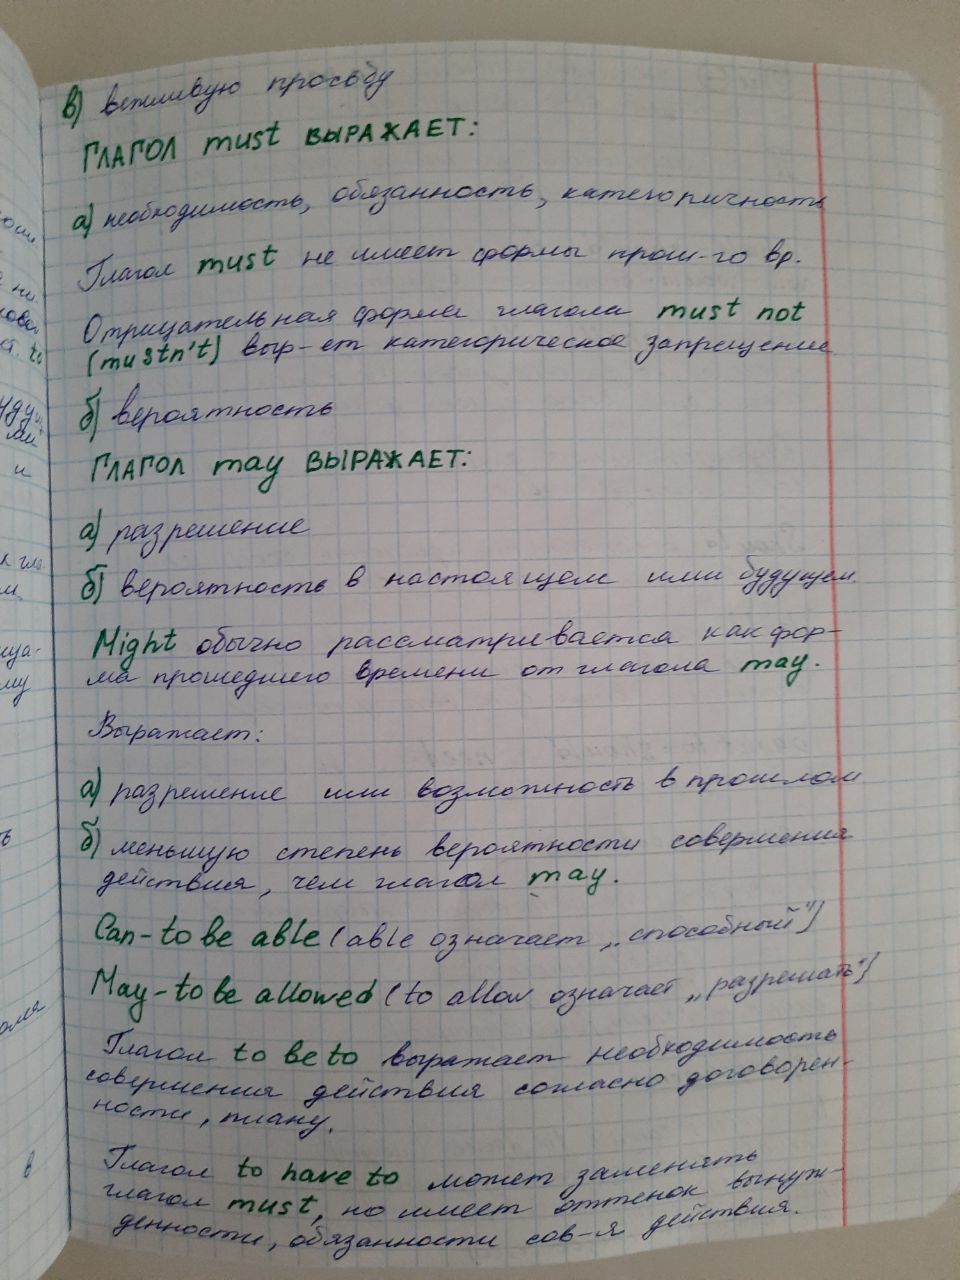 в) вежливую просьбу
ГЛАГОЛ must ВЫРАЖАЕТ:
а) необходимость, обязанность, категоричность
Глагол must не имеет формы прош-го вр.
Отрицательная форма глагола must not
(mustn't) выр-ет категорическое запрещение
б) вероятность
ГЛАГОЛ may ВЫРАЖАЕТ:
а) разрешение
б) вероятность в настоящем или будущем.
Might обычно рассматривается как фор-
ма прошедшего времени от глагола may.
Выражает:
а) разрешение или возможность в прошлом
б) меньшую степень вероятности совершения
действия, чем глагол may.
Can-to be able (able означает „способный")
May-to be allowed (to allow означает „разрешать")
Глагол to be to выражает необходимость
совершения действия согласно договорен-
ности, плану.
Глагол to have to может заменять
глагол must, но имеет оттенок вынуж-
денности, обязанности сов-я действия.